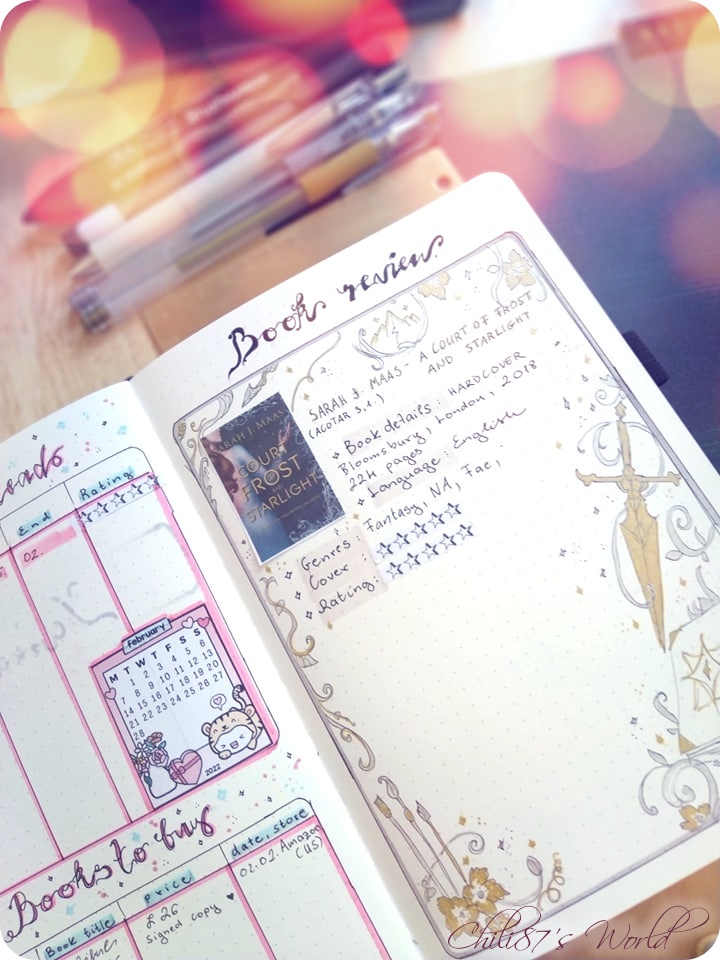 End
Rating
02.
February
M T W T F S S
1 2 3 4 5 6
7 8 9 10 11 12 13
14 15 16 17 18 19 20
21 22 23 24 25 26 27
28
2022
Books to buy
Book title
price
date, store
£26
signed copy
02.02. Amazon
(US)
Book review
SARAH J. MAAS
COURT
FROST
STARLIGHT
SARAH J. MAAS - A COURT OF FROST
(ACOTAR 3,1.) AND STARLIGHT
Book details: HARDCOVER
Bloomsbury, London, 2018
224 pages
Language: English
Genres: Fantasy, NA, Fae,
Cover:
Rating:
Chili87's World